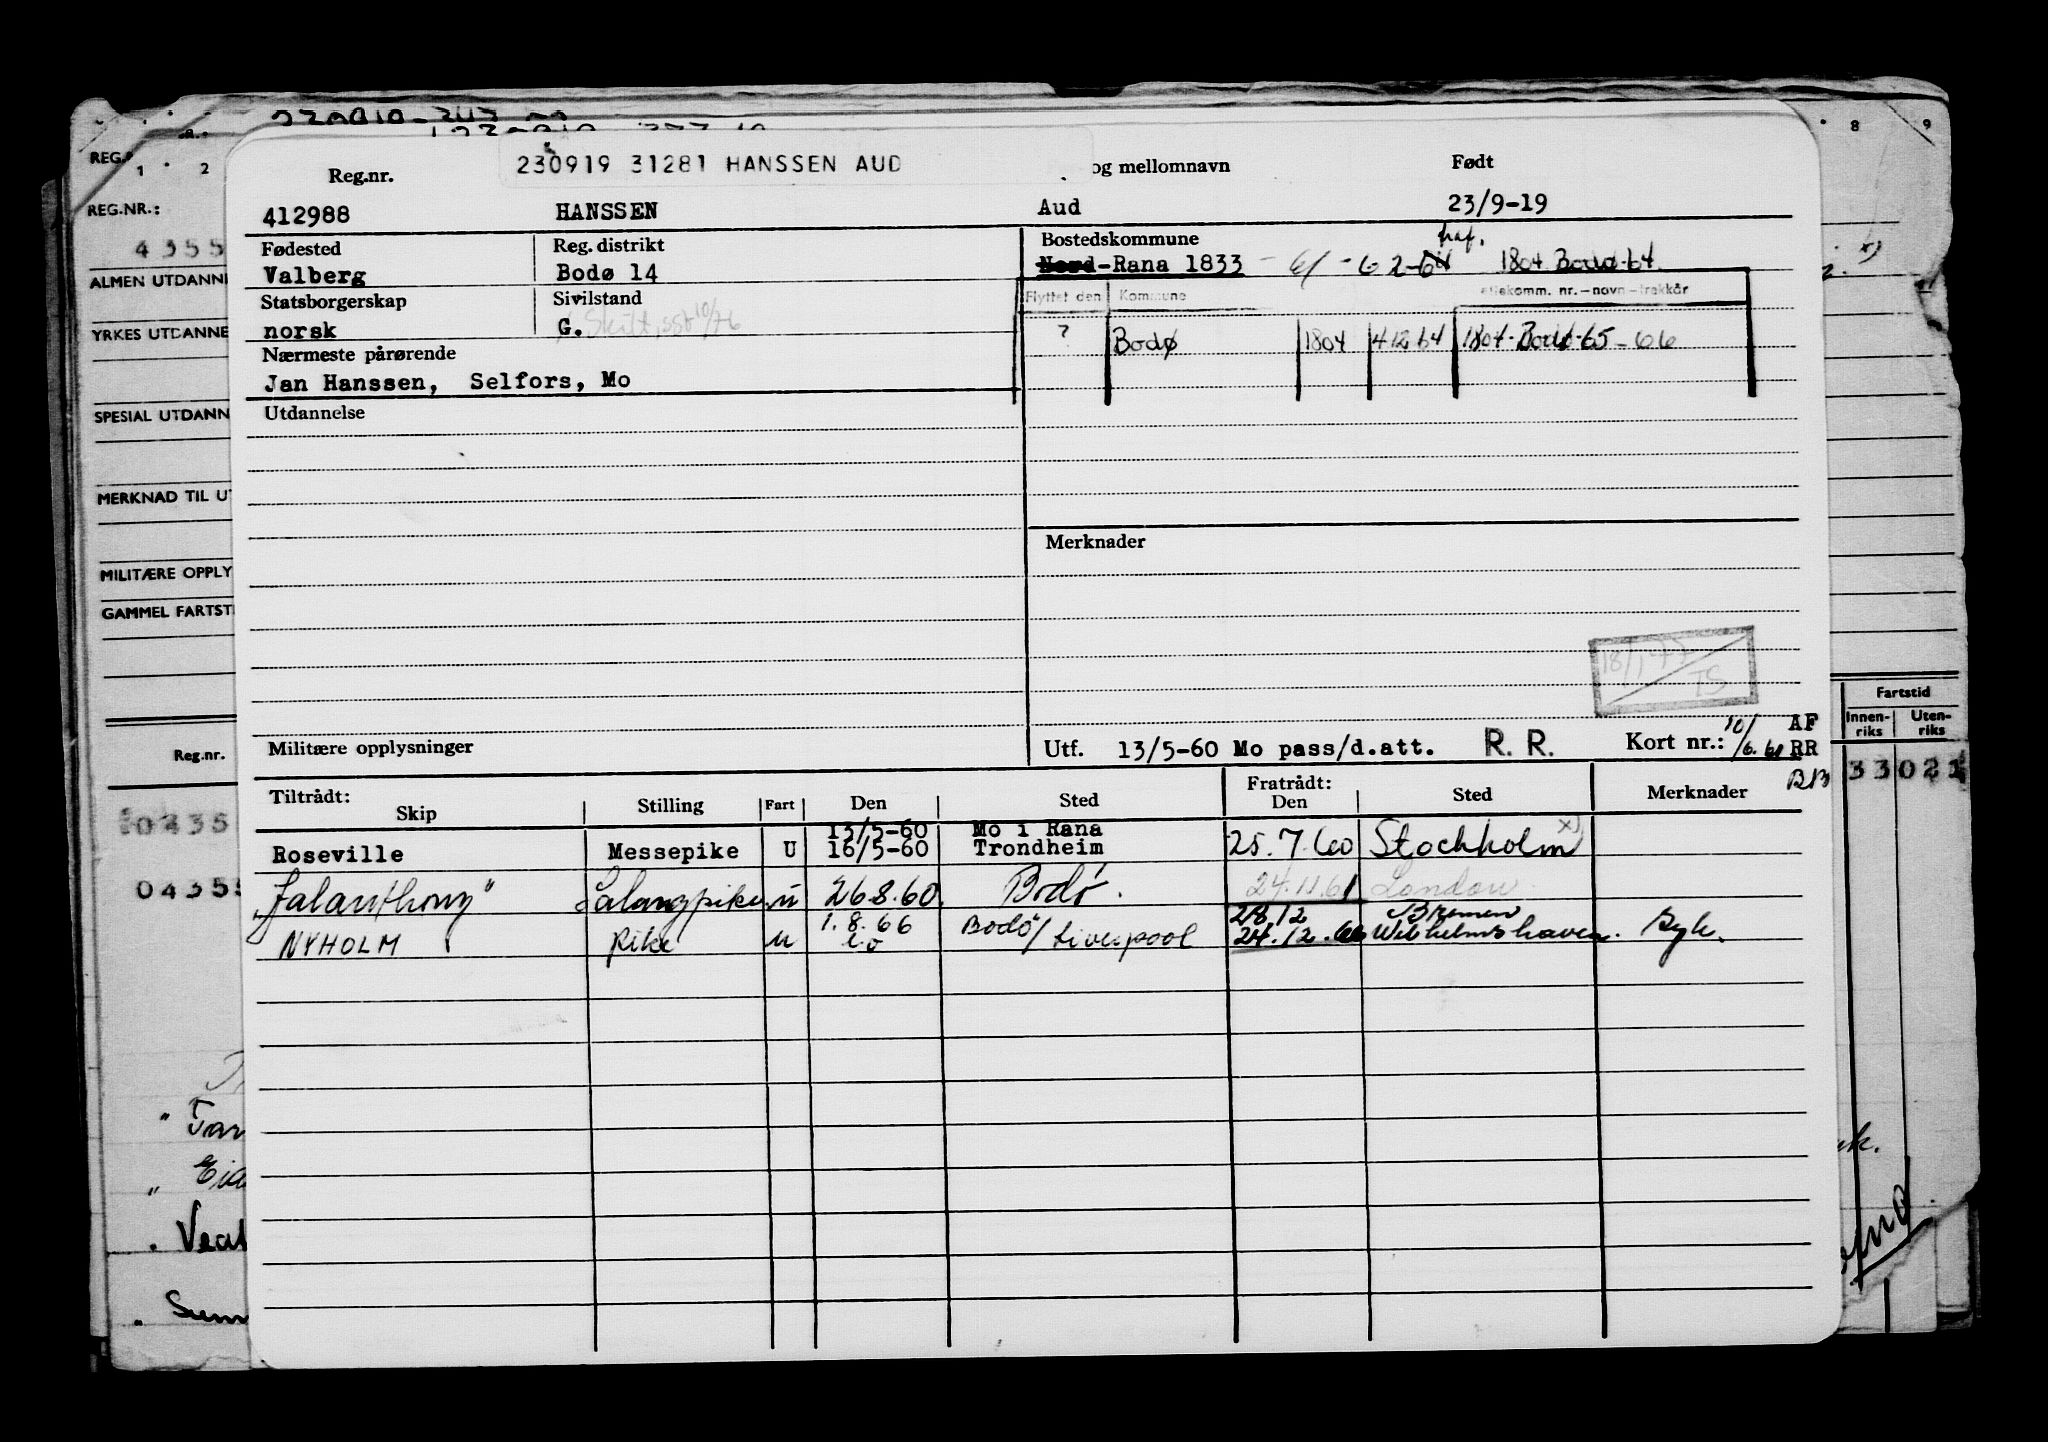 230919 31281 HANSSEN AUD
Reg.nr. og mellomnavn Født
412988 HANSSEN Aud 23/9-19
Fødested Reg. distrikt Bostedskommune
Valberg Bodø 14 Nord-Rana 1833 - 61 - 62-64 1804 Bodø-64
Statsborgerskap Sivilstand Flyttet den Kommune nr.-navn-trekkår
norsk G. ? Bodø 1804 412 64 1804-Bodø-65-66
Nærmeste pårørende
Jan Hanssen, Selfors, Mo
Utdannelse
Merknader
18/1-77
TS
Militære opplysninger Utf. 13/5-60 Mo pass/d.att. R. R. Kort nr.: 10/6.61 AF
RR
BB
Tiltrådt: Fratrådt:
Skip Stilling Fart Den Sted Den Sted Merknader
13/5-60 Mo i Rana
Roseville Messepike U 16/5-60 Trondheim 25.7.60 Stockholm x)
"Jalanthony" Salongpike u 26.8.60 Bodø. 24.11.61 London
1.8.66 28.12 Bremen
NYHOLM Pike u Bodø/Liverpool 24.12.66 Wilhelmshaven. Syk.
REG.NR.:
4355
ALMEN UTDANNE
YRKES UTDANNE
SPESIAL UTDANN
MERKNAD TIL U
MILITÆRE OPPLY
GAMMEL FARTST
Reg.nr.
0435
0435
1 2
8 9
Fartstid
Innen-riks Uten-riks
33021